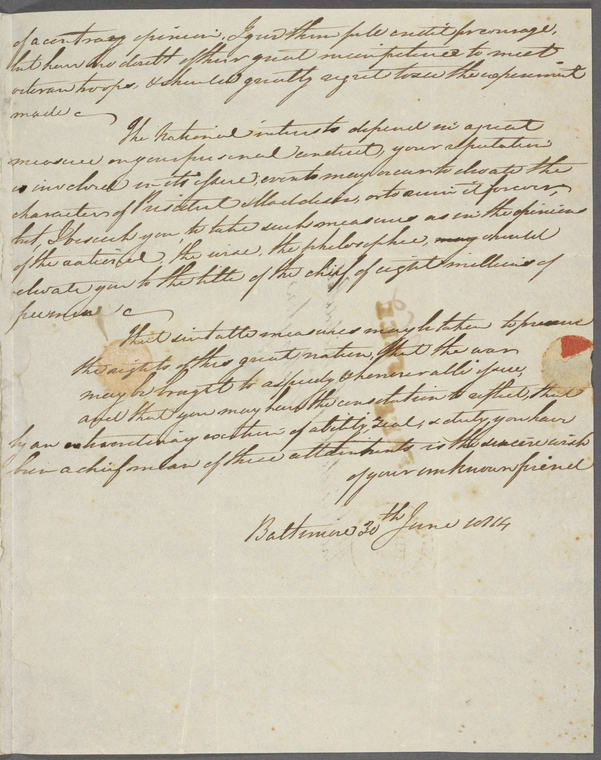 of a contrary opinion, I give them full credit for courage,
but have no doubt of their great incompetence to meet
veteran troops, & should greatly regret to see the experiment
made
The National interests depend in a great
measure on your personal conduct, your reputation
is involved in its issue; events may occur to elevate the
character of President Maddison, or to ruin it forever,
but, I beseech you, to take such measures as in the opinion
of the rational, the wise, the philosophic, should
elevate you to the title of the chief of eight millions of
freemen
That suitable measures may be taken to preserve
the rights of this great nation, that the war
may be braght to a speedy & honorable issue,
and that you may have the consolation to reflect, that
by an extraordinary exertion of ability, zeal & duty you have
been a chief mean of these attainments is the sincere wish
of your unknown friend
Baltimore 30th June 1814
FREE